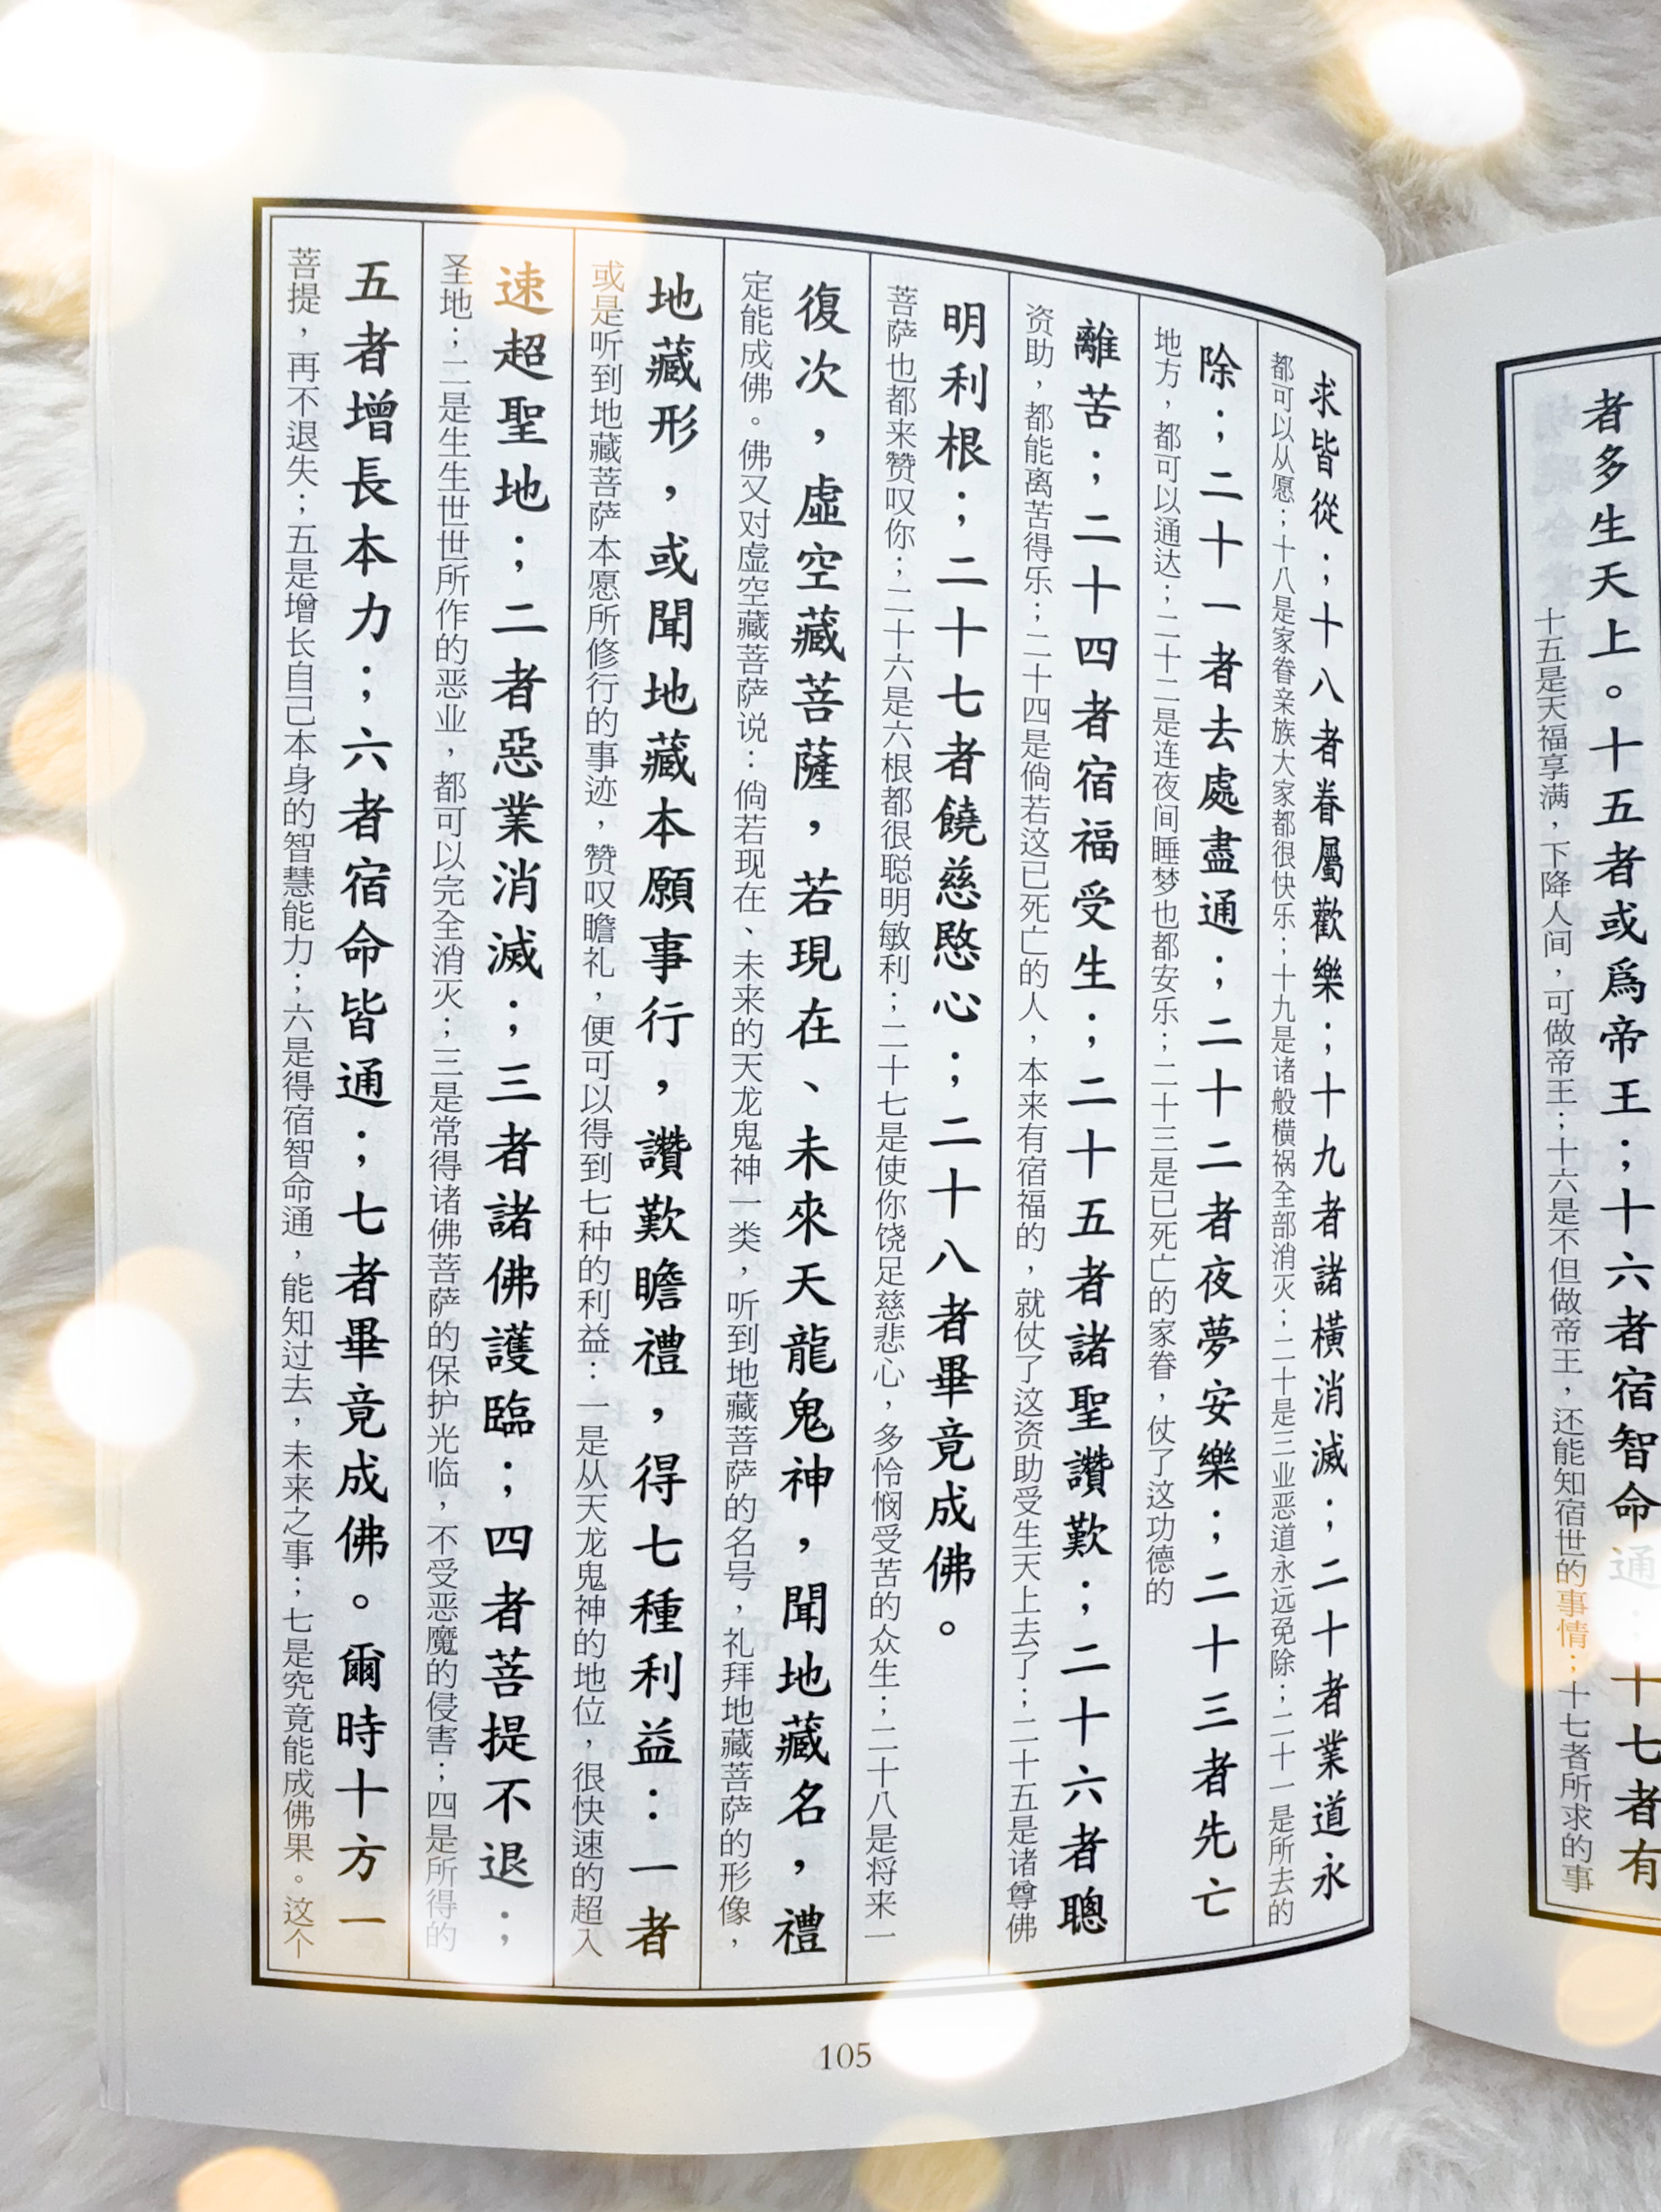 者多生天上。十五者或爲帝王；十六者宿智命通；十七者有
十五是天福享满，下降人间，可做帝王；十六是不但做帝王，还能知宿世的事情；十七者所求的事
求皆從；十八者眷屬歡樂；十九者諸橫消滅；二十者業道永
都可以从愿；十八是家眷亲族大家都很快乐；十九是诸般横祸全部消灭；二十是三业恶道永远免除；二十一是所去的
除；二十一者去處盡通；二十二者夜夢安樂；二十三者先亡
地方，都可以通达；二十二是连夜间睡梦也都安乐；二十三是已死亡的家眷，仗了这功德的
離苦；二十四者宿福受生；二十五者諸聖讚歎；二十六者聰
资助，都能离苦得乐；二十四是倘若这已死亡的人，本来有宿福的，就仗了这资助受生天上去了；二十五是诸尊佛
明利根；二十七者饒慈愍心；二十八者畢竟成佛。
菩萨也都来赞叹你；二十六是六根都很聪明敏利；二十七是使你饶足慈悲心，多怜悯受苦的众生；二十八是将来一
復次，虛空藏菩薩，若現在、未來天龍鬼神，聞地藏名，禮
定能成佛。佛又对虚空藏菩萨说：倘若现在、未来的天龙鬼神一类，听到地藏菩萨的名号，礼拜地藏菩萨的形像，
地藏形，或聞地藏本願事行，讚歎瞻禮，得七種利益：一者
或是听到地藏菩萨本愿所修行的事迹，赞叹瞻礼，便可以得到七种的利益：一是从天龙鬼神的地位，很快速的超入
速超聖地；二者惡業消滅；三者諸佛護臨；四者菩提不退；
圣地；二是生生世世所作的恶业，都可以完全消灭；三是常得诸佛菩萨的保护光临，不受恶魔的侵害；四是所得的
五者增長本力；六者宿命皆通；七者畢竟成佛。爾時十方一
菩提，再不退失；五是增长自己本身的智慧能力；六是得宿智命通，能知过去，未来之事；七是究竟能成佛果。这个
105